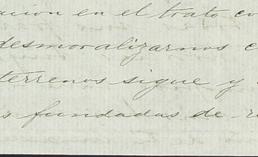 acion en el trato co
desmoralizarnos c
terrenos sigue y
s fundadas de r